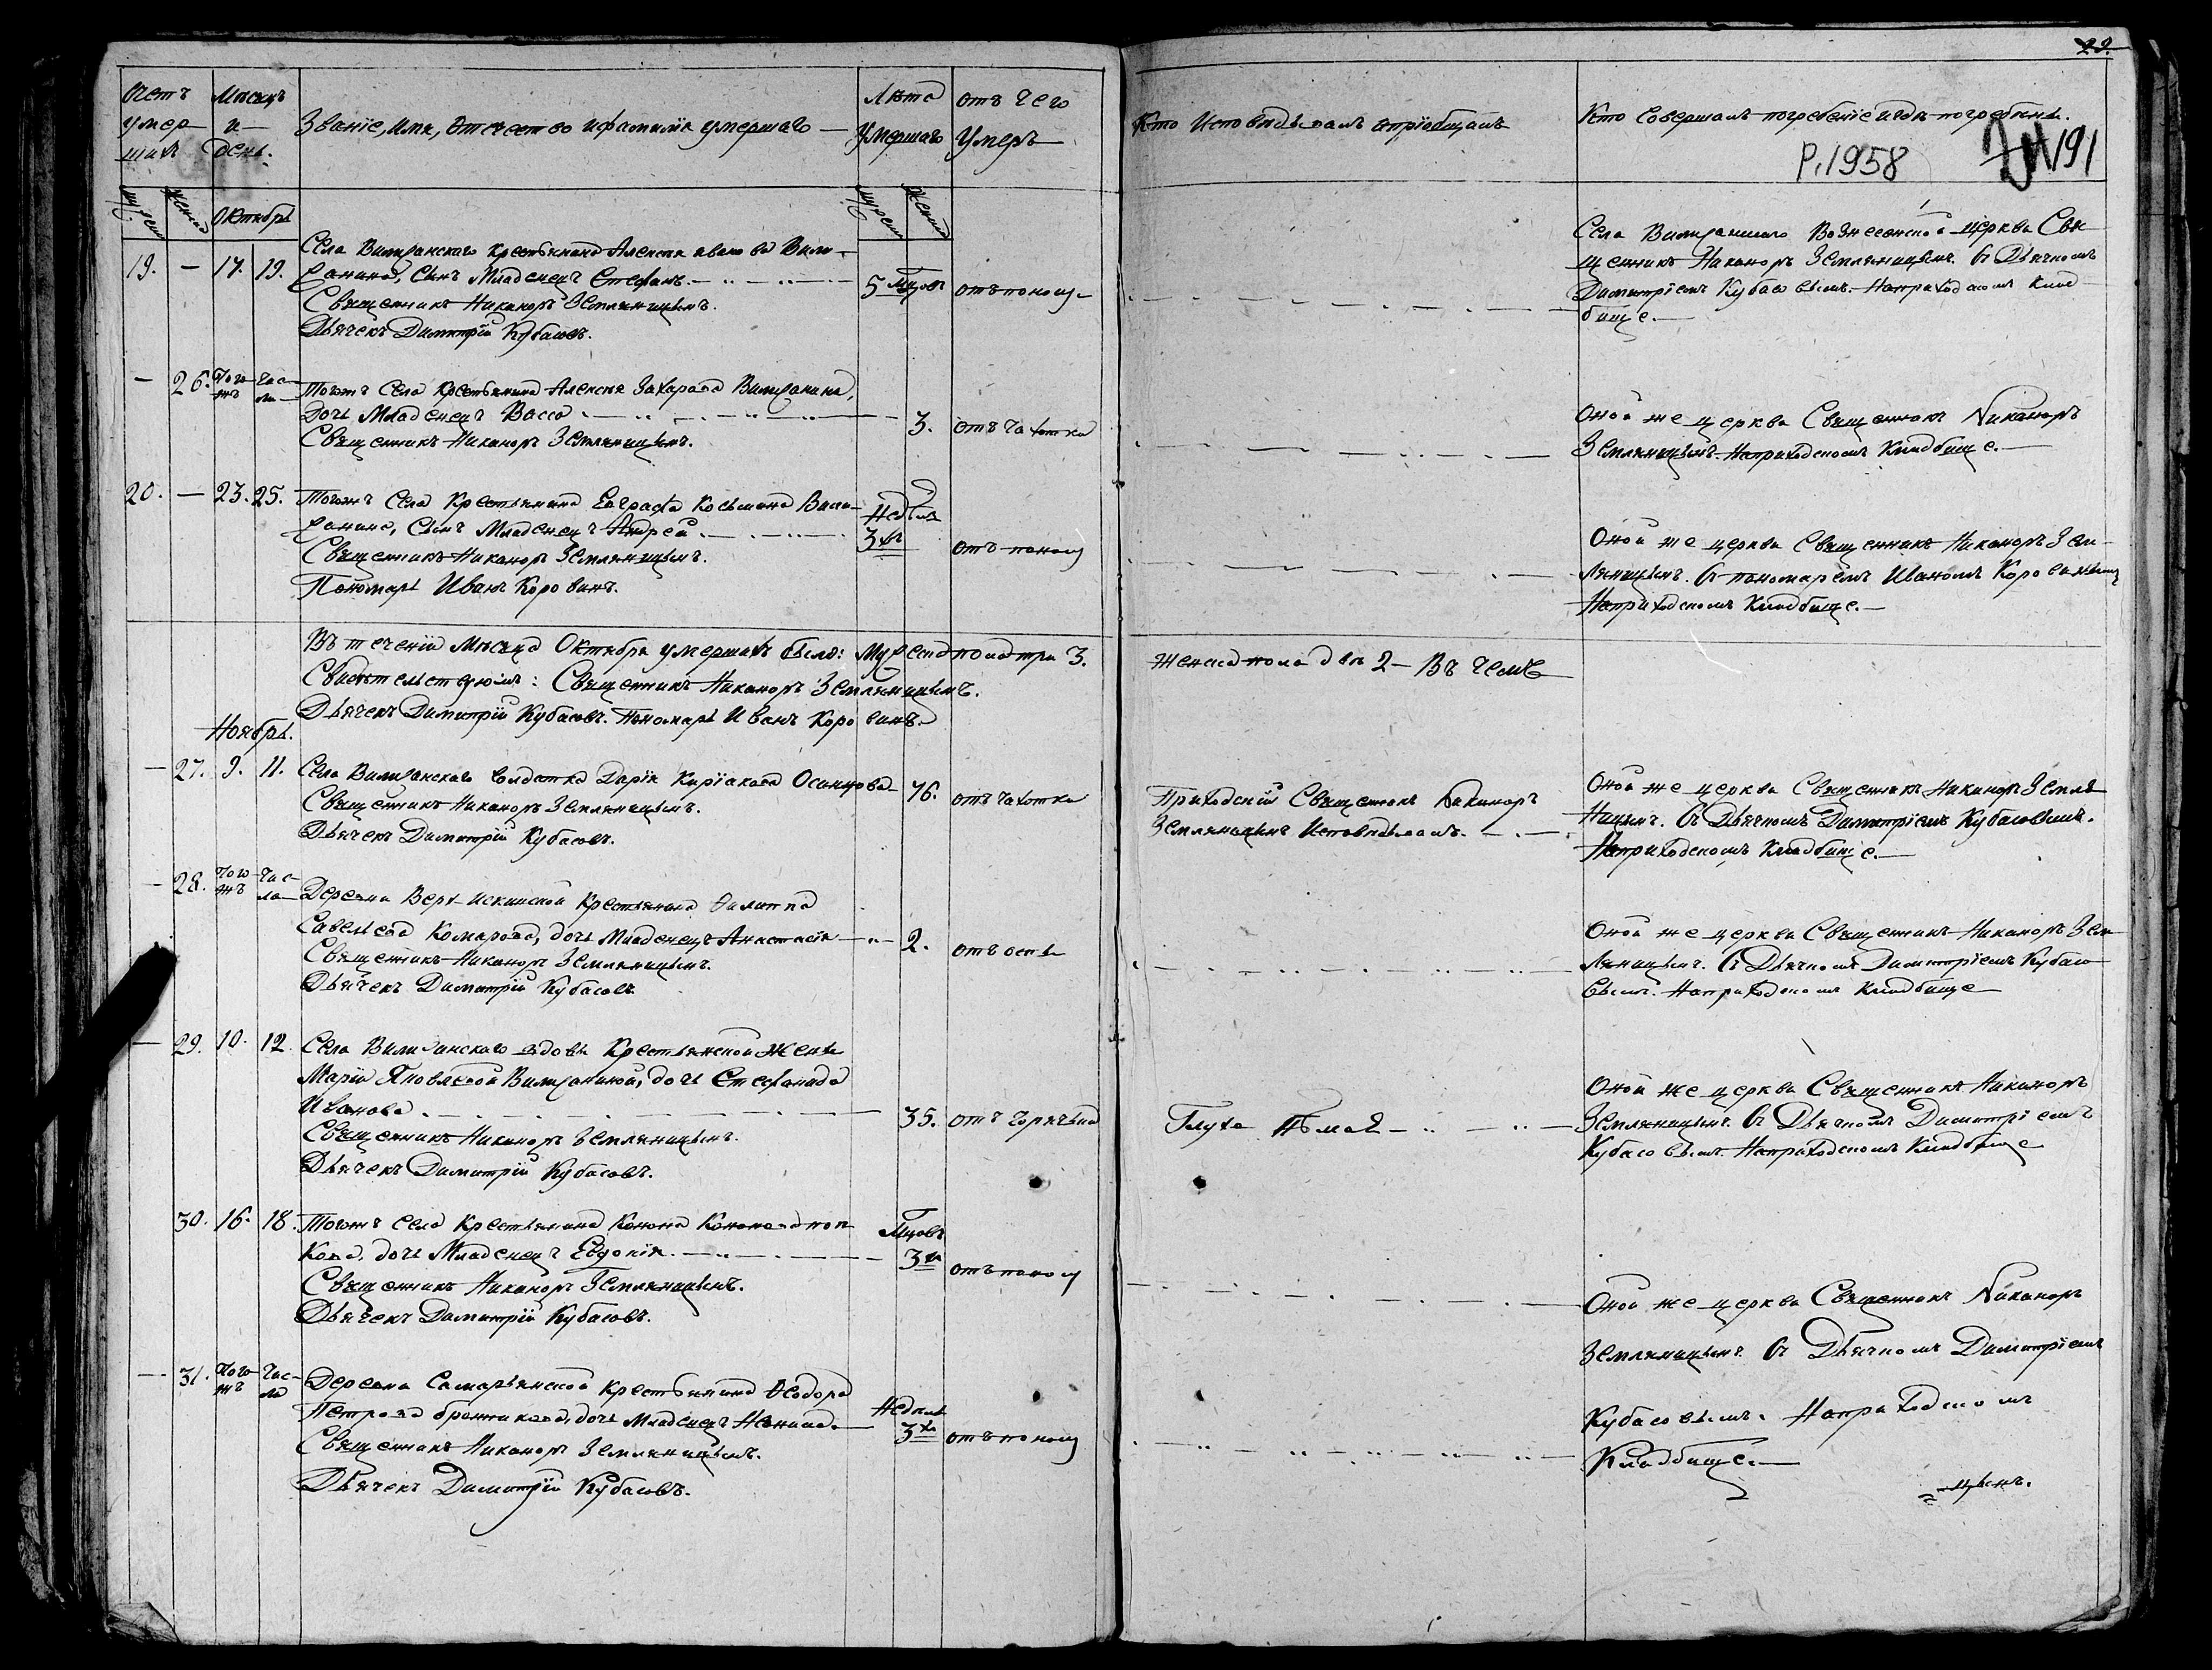 29.
Счетъ умершихъ
Мѣсяцъ и день.
Званіе, имя, отчество и фамилія умершаго
Лѣта умершаго
Отъ чего умеръ
Кто исповѣдывалъ и пріобщалъ
Кто совершалъ погребеніе и гдѣ погребены.
Р.1958
191
Октябрь
19. — 17. 19.
Села крестьянина Алексѣя
сынъ Младенецъ Стефанъ.
Священникъ Никаноръ Земляницынъ.
Дьячекъ Димитрій Кубасовъ.
5 Мцовъ
отъ поносу
Села Вознесенской церкви Свя-
щенникъ Никаноръ Земляницынъ. Съ Дьячкомъ
Димитріемъ Кубасовымъ. На приходскомъ клад-
бище.
— 26. Того жъ Числа
Тогожъ Села Крестьянина Алексѣя Захарова
дочь Младенецъ Васса
Священникъ Никаноръ Земляницынъ.
3.
отъ чахотки
Оной же церкви Священникъ Никаноръ
Земляницынъ. На приходскомъ Кладбище.
20. — 23. 25.
Тогожъ Села Крестьянина Евграфа Косьмина
сынъ Младенецъ Андрей.
Священникъ Никаноръ Земляницынъ.
Пономарь Иванъ Коровинъ.
3хъ
отъ поносу
Оной же церкви Священникъ Никаноръ Зем-
ляницынъ. Съ пономаремъ Иваномъ Коровинымъ
На приходскомъ Кладбище.
Въ теченіи Мѣсяца Октября умершихъ было: Мужеска пола три 3. Женска пола двѣ 2 — Въ чемъ
Свидѣтельствуютъ: Священникъ Никаноръ Земляницынъ.
Дьячекъ Димитрій Кубасовъ. Пономарь Иванъ Коровинъ.
Ноябрь.
— 27. 9. 11.
Села солдатка Дарія Киріакова Осипова
Священникъ Никаноръ Земляницынъ.
Дьячекъ Димитрій Кубасовъ.
76.
отъ чахотки
Приходскій Священникъ Никаноръ
Земляницынъ Исповѣдывалъ.
Оной же церкви Священникъ Никаноръ Земля-
ницынъ. Съ Дьячкомъ Димитріемъ Кубасовымъ.
На приходскомъ Кладбище.
— 28. Того жъ Числа
Деревни Верх-Искинской Крестьянина Филиппа
Савельева Комарова, дочь Младенецъ Анастасія
Священникъ Никаноръ Земляницынъ.
Дьячекъ Димитрій Кубасовъ.
2.
отъ оспы
Оной же церкви Священникъ Никаноръ Зем-
ляницынъ. Съ Дьячкомъ Димитріемъ Кубасо-
вымъ. На приходскомъ Кладбище
— 29. 10. 12.
Села вдовы Крестьянской Жены
Маріи Яковлевой дочь Стефанида
Иванова.
Священникъ Никаноръ Земляницынъ.
Дьячекъ Димитрій Кубасовъ.
35.
отъ горячьки
Глуха Нѣмая
Оной же церкви Священникъ Никаноръ
Земляницынъ. Съ Дьячкомъ Димитріемъ
Кубасовымъ. На приходскомъ Кладбище
30. 16. 18.
Тогожъ Села Крестьянина Конона
дочь Младенецъ Евдокія.
Священникъ Никаноръ Земляницынъ.
Дьячекъ Димитрій Кубасовъ.
Мцовъ 3хъ
отъ поносу
Оной же церкви Священникъ Никаноръ
Земляницынъ. Съ Дьячкомъ Димитріемъ
Кубасовымъ. На приходскомъ
Кладбище.
— 31. Того жъ Числа
Деревни Самарьянской Крестьянина Ѳеодора
Петрова дочь Младенецъ
Священникъ Никаноръ Земляницынъ.
Дьячекъ Димитрій Кубасовъ.
3хъ
отъ поносу